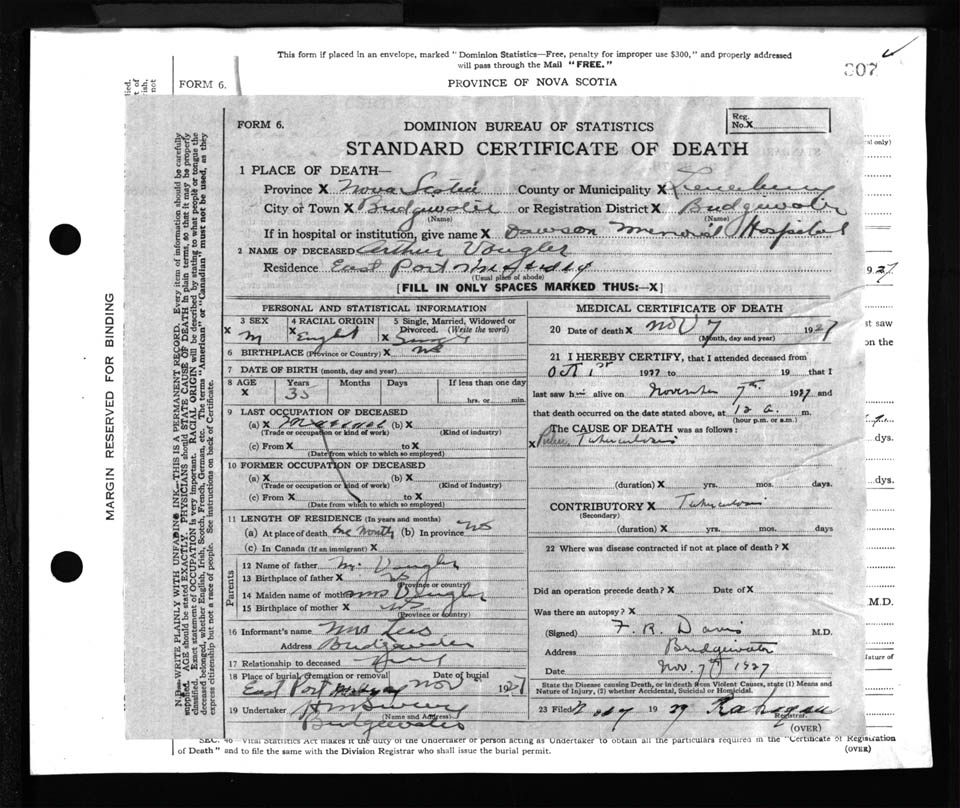 This form if placed in an envelope, marked "Dominion Statistics—Free, penalty for improper use $300," and properly addressed
will pass through the Mail "FREE."
307
FORM 6.
PROVINCE OF NOVA SCOTIA
MARGIN RESERVED FOR BINDING
N.B.—WRITE PLAINLY WITH UNFADING INK—THIS IS A PERMANENT RECORD. Every item of information should be carefully
supplied. AGE should be stated EXACTLY. PHYSICIANS should STATE CAUSE OF DEATH in plain terms, so that it may be properly
classified. Exact statement of OCCUPATION is very important. RACIAL ORIGIN will be described by stating to what people or tongue the
deceased belonged, whether English, Irish, Scotch, French, German, etc. The terms "American" or "Canadian" must not be used, as they
express citizenship but not a race of people. See instructions on back of Certificate.
FORM 6.
DOMINION BUREAU OF STATISTICS
Reg.
No.X
STANDARD CERTIFICATE OF DEATH
1 PLACE OF DEATH—
Province X Nova Scotia County or Municipality X Lunenburg
City or Town X Bridgewater or Registration District X Bridgewater
(Name) (Name)
If in hospital or institution, give name X Dawson Memorial Hospital
2 NAME OF DECEASED Arthur Vougler
Residence East Port Medway
(Usual place of abode)
[FILL IN ONLY SPACES MARKED THUS:—X]
PERSONAL AND STATISTICAL INFORMATION
3 SEX 4 RACIAL ORIGIN 5 Single, Married, Widowed or
Divorced. (Write the word)
X M X Englt X Single
6 BIRTHPLACE (Province or Country) X NS
7 DATE OF BIRTH (month, day and year)
8 AGE Years Months Days If less than one day
X 35 hrs. or min.
9 LAST OCCUPATION OF DECEASED
(a) X (b) X
(Trade or occupation or kind of work) (Kind of industry)
(c) From X to X
(Date from which to which so employed)
10 FORMER OCCUPATION OF DECEASED
(a) X (b) X
(Trade or occupation or kind of work) (Kind of Industry)
(c) From X to X
(Date from which to which so employed)
11 LENGTH OF RESIDENCE (In years and months)
(a) At place of death one month (b) In province NS
(c) In Canada (If an immigrant) X
Parents
12 Name of father Mr Vougler
13 Birthplace of father X NS
(Province or country)
14 Maiden name of mother Mrs Vougler
15 Birthplace of mother X NS
(Province or country)
16 Informant's name Mrs
Address Bridgewater
17 Relationship to deceased
18 Place of burial, cremation or removal Date of burial
East Port Medway Nov 1927
19 Undertaker
(Name and Address)
Bridgewater
MEDICAL CERTIFICATE OF DEATH
20 Date of death X Nov 7 1927
(Month, day and year)
21 I HEREBY CERTIFY, that I attended deceased from
Oct 1st 1927 to 19 that I
last saw him alive on November 7th 1927 and
that death occurred on the date stated above, at 12 a. m.
(hour p.m. or a.m.)
The CAUSE OF DEATH was as follows:
X Tuberculosis
(duration) X yrs. mos. days.
CONTRIBUTORY X Tuberculosis
(Secondary)
(duration) X yrs. mos. days
22 Where was disease contracted if not at place of death? X
Did an operation precede death? X Date of X
Was there an autopsy? X
(Signed) F. R. Davis M.D.
Address Bridgewater
Date Nov. 7th 1927
State the Disease causing Death, or in death from Violent Causes, state (1) Means and
Nature of Injury, (2) whether Accidental, Suicidal or Homicidal.
23 Filed 19
Registrar.
(OVER)
SEC. 46 Vital Statistics Act makes it the duty of the Undertaker or person acting as Undertaker to obtain all the particulars required in the "Certificate of Registration
of Death" and to file the same with the Division Registrar who shall issue the burial permit.
(OVER)